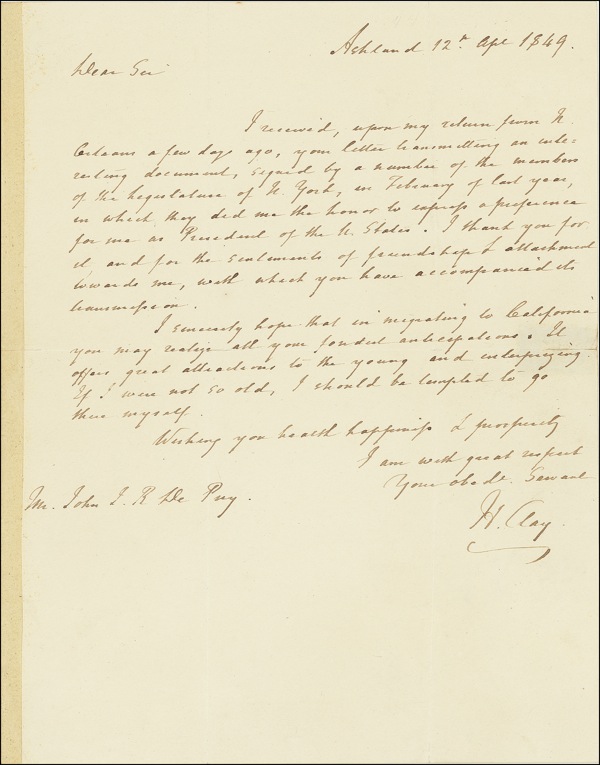 Ashland 12th Apl 1849.
Dear Sir
I received, upon my return from N.
Orleans a few days ago, your letter transmitting an inte=
resting document, signed by a number of the members
of the Legislature of N. York, in February of last year,
in which they did me the honor to express a preference
for me as President of the U. States. I thank you for
it and for the sentiments of friendship & attachment
towards me, with which you have accompanied its
transmission.
I sincerely hope that in migrating to California
you may realize all your fondest anticipations. It
offers great attractions to the young and enterprizing.
If I were not so old, I should be tempted to go
there myself.
Wishing you health happiness & prosperity
I am with great respect
Your obedt. Servant
H. Clay.
Mr. John I. R De Puy.